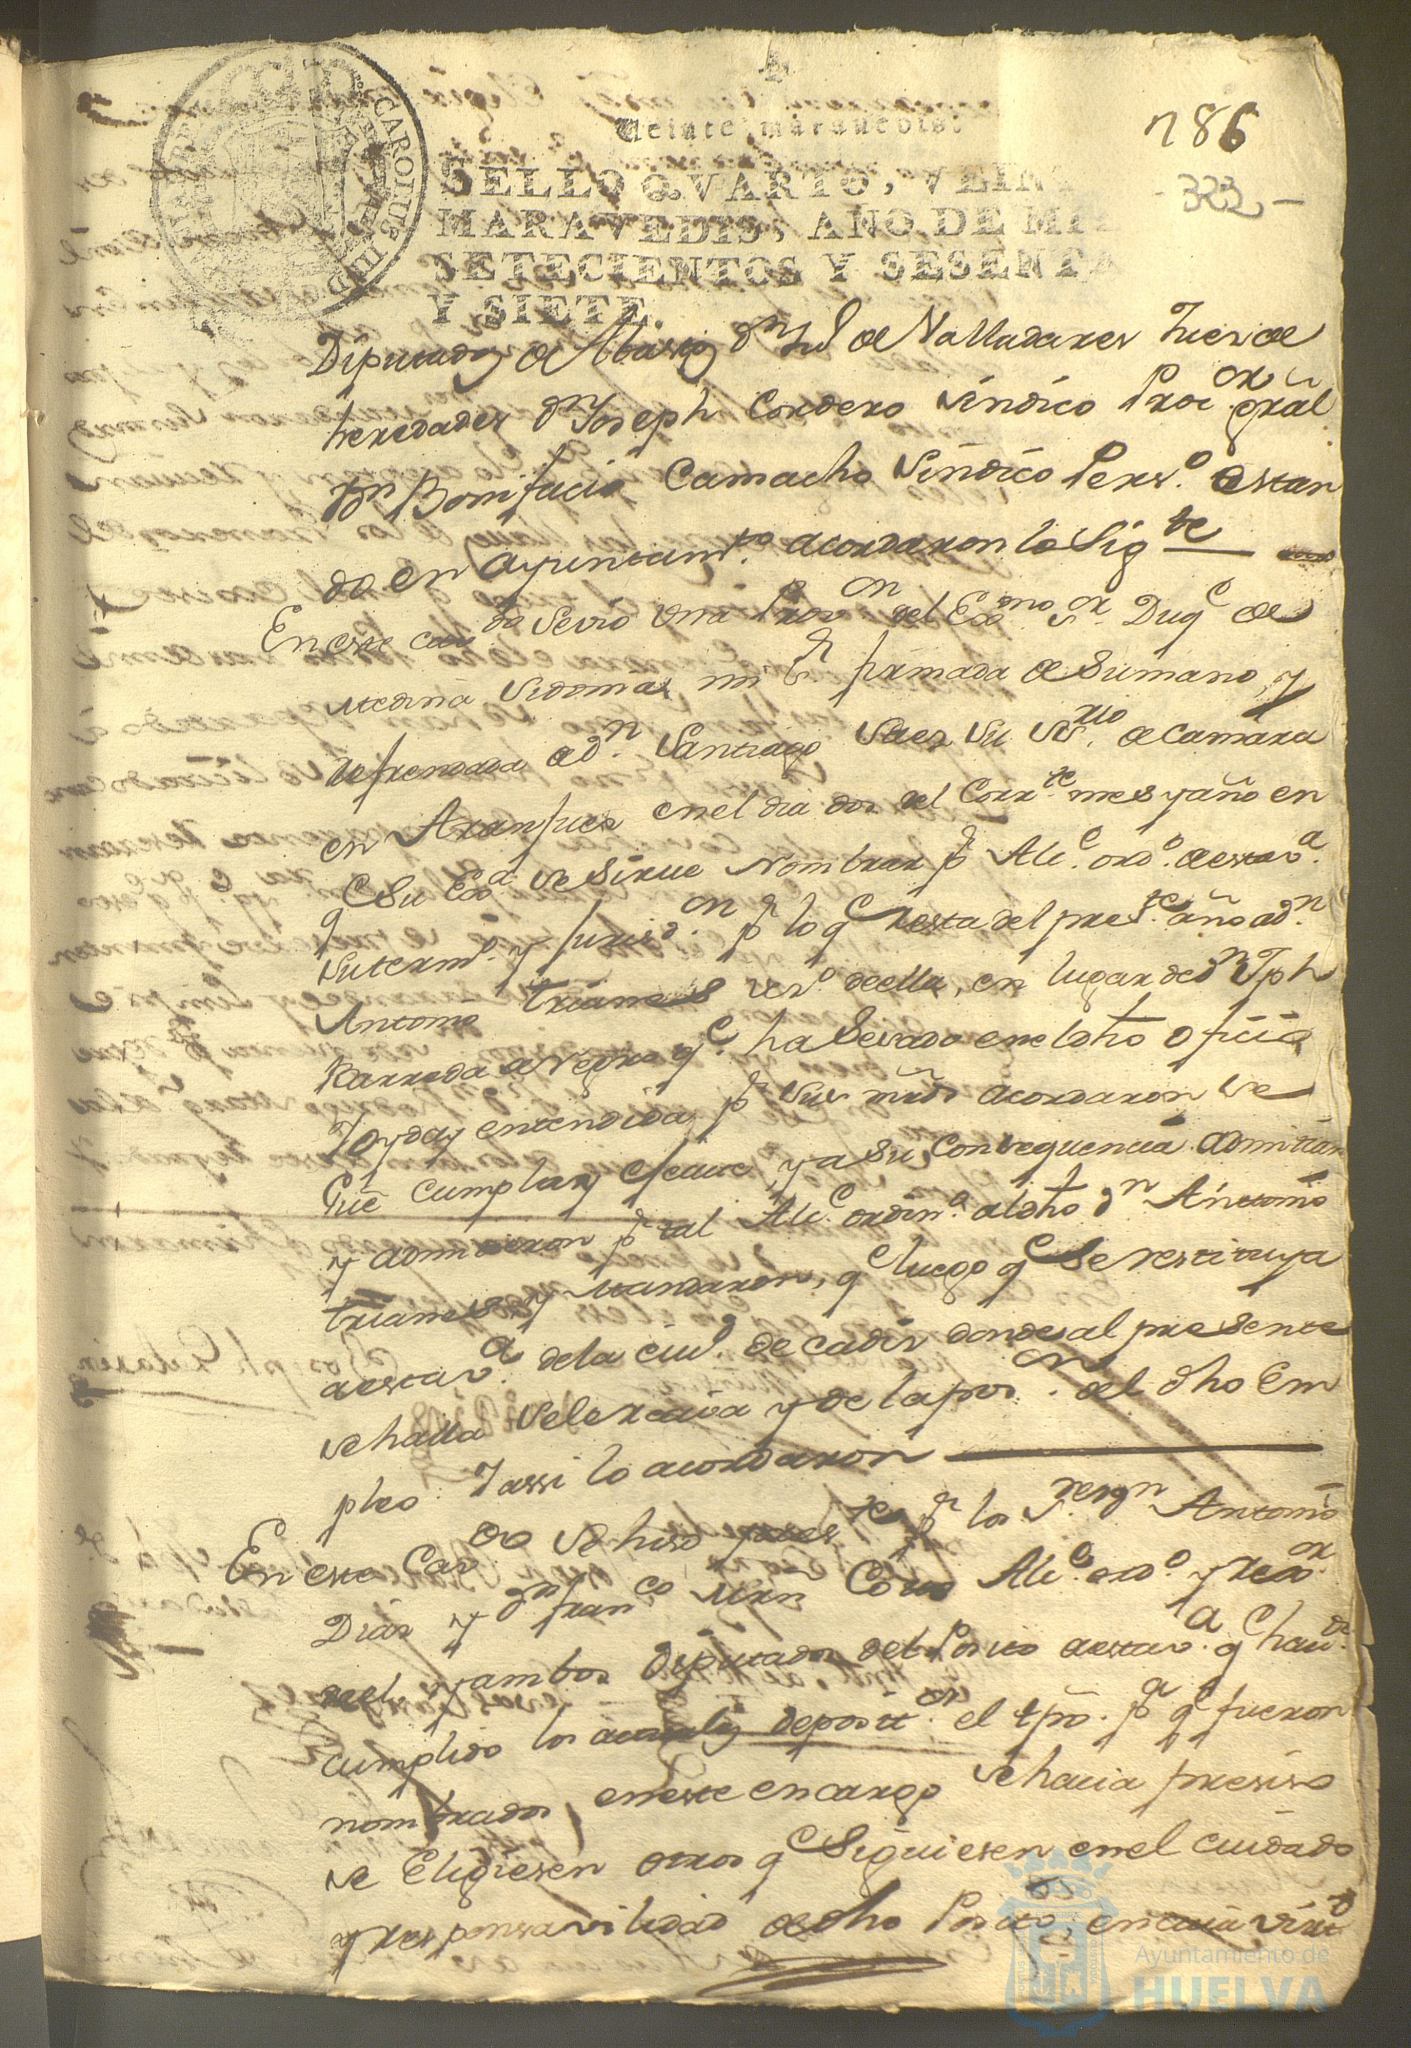 Veinte maravedis.
SELLO QVARTO, VEIN
MARAVEDIS, AÑO DE MI
SETECIENTOS Y SESENTA
Y SIETE.
CAROLUS III D
186
323
Diputados de Abastos Dn de Valladares Juez de
heredades Dn Joseph Cordero Sindico Procor gral
Dn Bonifacio Camacho Sindico Perso estan
do en Ayuntamto acordaron lo Sigte
En este cavdo Se vió Una Provon del Exmo Sor Duqe de
Medina Sidonia mi Sr firmada de Su mano, y
refrendada de Dn Santiago Saez Su Srio de Camara
en Aranjuez en el dia dos del Corrte mes y año en
qe Su Exa se Sirve Nombrar pr Alce ordo de esta va
Su termo y jurisdon pr lo qe resta del preste año a Dn
Antonio trianes vezo de ella, en lugar de Dn Jph
Barreda qe ha Servado en el dho oficio
Y oyda y entendida pr Sus mrds acordaron se
Gue cumpla y efecute, y a Su Consequencia admitian
y admitieron pr tal Alce ordino al dho Dn Antonio
trianes y Mandaron, qe luego qe Se restituya
a esta va de la ciud de Cadiz donde al presente
se halla Se le reciva y de la poson del dho Em
pleo. Y assi lo acordaron
En este Cavdo Se hiso preste pr los Sres Dn Antonio
Dias y Dn Franco Mrn Alce ordo y rexor
y ambos Diputados del Posito de esta va qe havdo
cumplido los actuales deposits el tpo pa qe fueron
nombrados, en este encargo Se hacia presiso
se Eligiesen otros qe Siguiesen en el cuidado
y responsavilidad de dho Posito, en cuia virtd
Ayuntamiento de
HUELVA